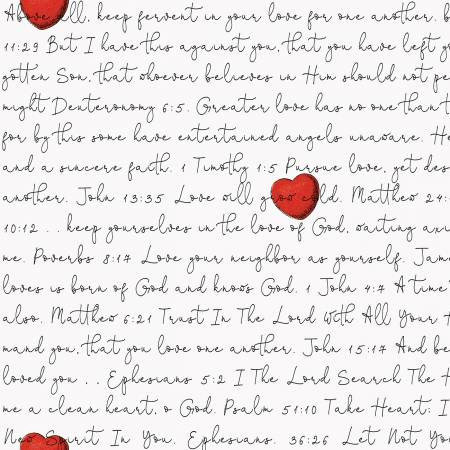 Above all, keep fervent in your love for one another. b
11:29 But I have this against you, that you have left y
gotten Son, that whoever believes in Him should not pe
might Deuteronomy 6:5. Greater love has no one than t
for by this some have entertained angels unaware. He
and a sincere faith. 1 Timothy 1:5 Pursue love, yet des
another. John 13:35 Love will grow cold. Matthew 24:
10:12 .. keep yourselves in the love of God, waiting anx
me. Proverbs 8:17 Love your neighbor as yourself. Jam
loves is born of God and knows God. 1 John 4:7 A time
also. Matthew 6:21 Trust In The Lord With All Your H
mand you, that you love one another. John 15:17 And be
loved you .. Ephesians 5:2 I The Lord Search The H
me a clean heart, o God. Psalm 51:10 Take Heart; I
New Spirit In You. Ephesians. 36:26 Let Not Yo